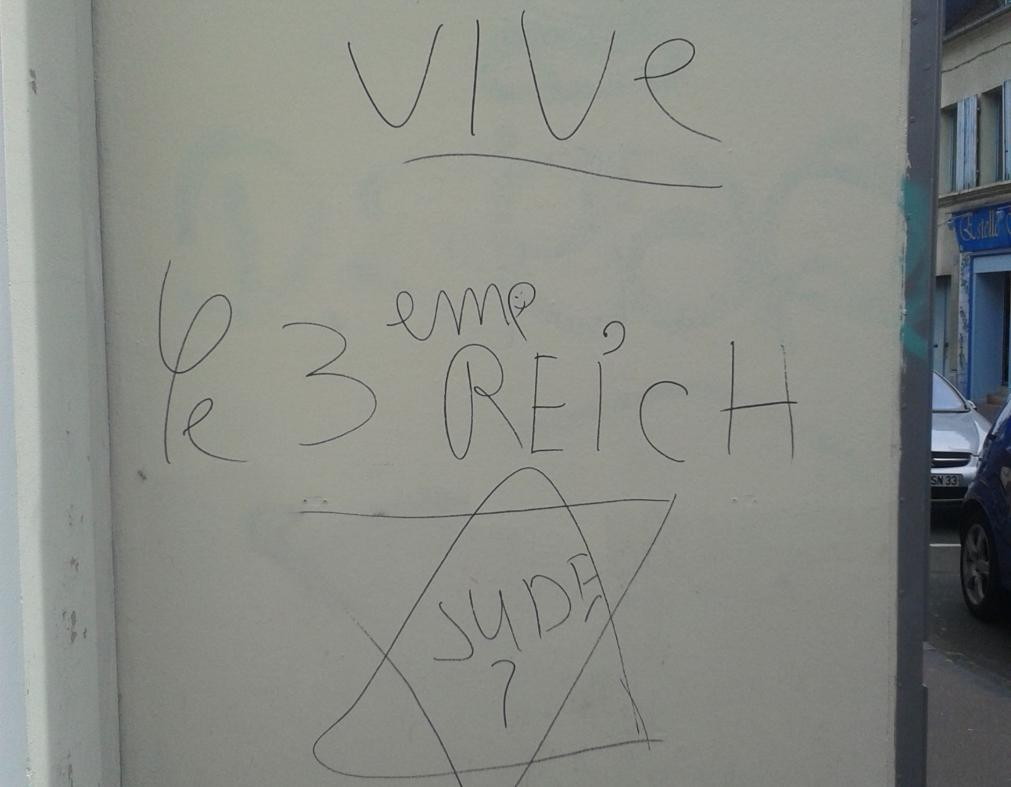 VIVe
le 3eme REicH
JUDE
?
Estelle
SN 33